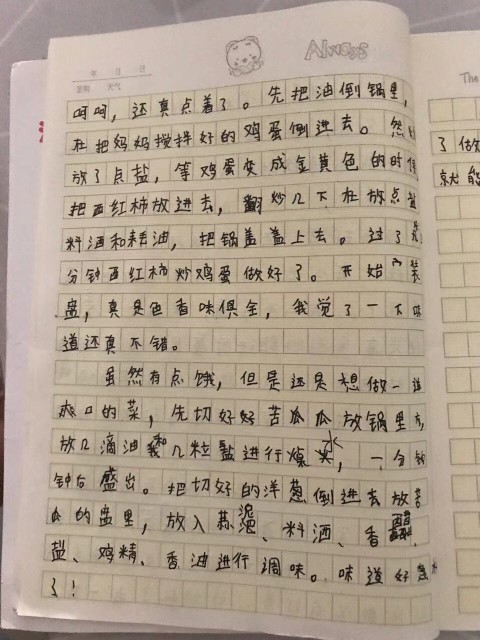 年 月 日
星期 天气
Always
The
呵呵，还真点着了。先把油倒锅里，
在把妈妈搅拌好的鸡蛋倒进去。然
放了点盐，等鸡蛋变成金黄色的时候
把西红柿放进去，翻炒几下在放点盐
料酒和耗油，把锅盖盖上去。过了
分钟西红柿炒鸡蛋做好了。开始装
盘，真是色香味俱全，我觉了一下味
道还真不错。
虽然有点饿，但是还是想做一道
爽口的菜，先切好好苦瓜瓜放锅里
放几滴油和几粒盐进行焯水，一分钟
钟后盛出。把切好的洋葱倒进去放苦
瓜的盘里，放入蒜、料酒、香醋、
盐、鸡精、香油进行调味。味道好
了！
了做
就能